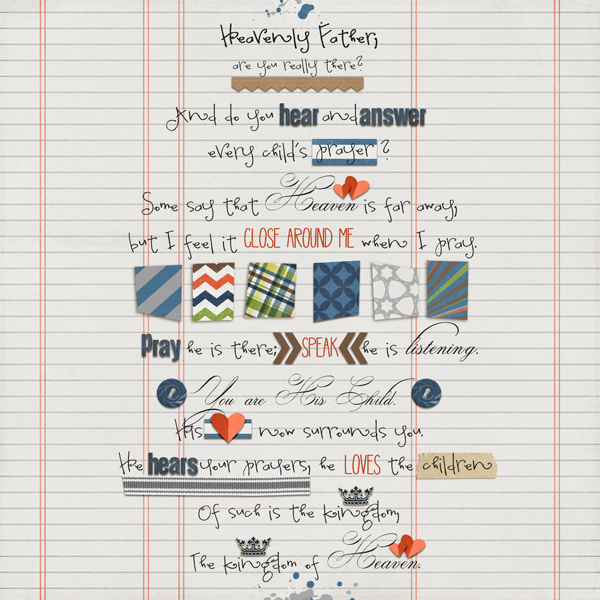 Heavenly Father,
are you really there?
And do you hear and answer
every child's prayer?
Some say that Heaven is far away,
but I feel it CLOSE AROUND ME when I pray.
Pray he is there; SPEAK he is listening.
You are His Child.
His now surrounds you.
He hears your prayers, he LOVES the children
Of such is the kingdom,
The kingdom of Heaven.